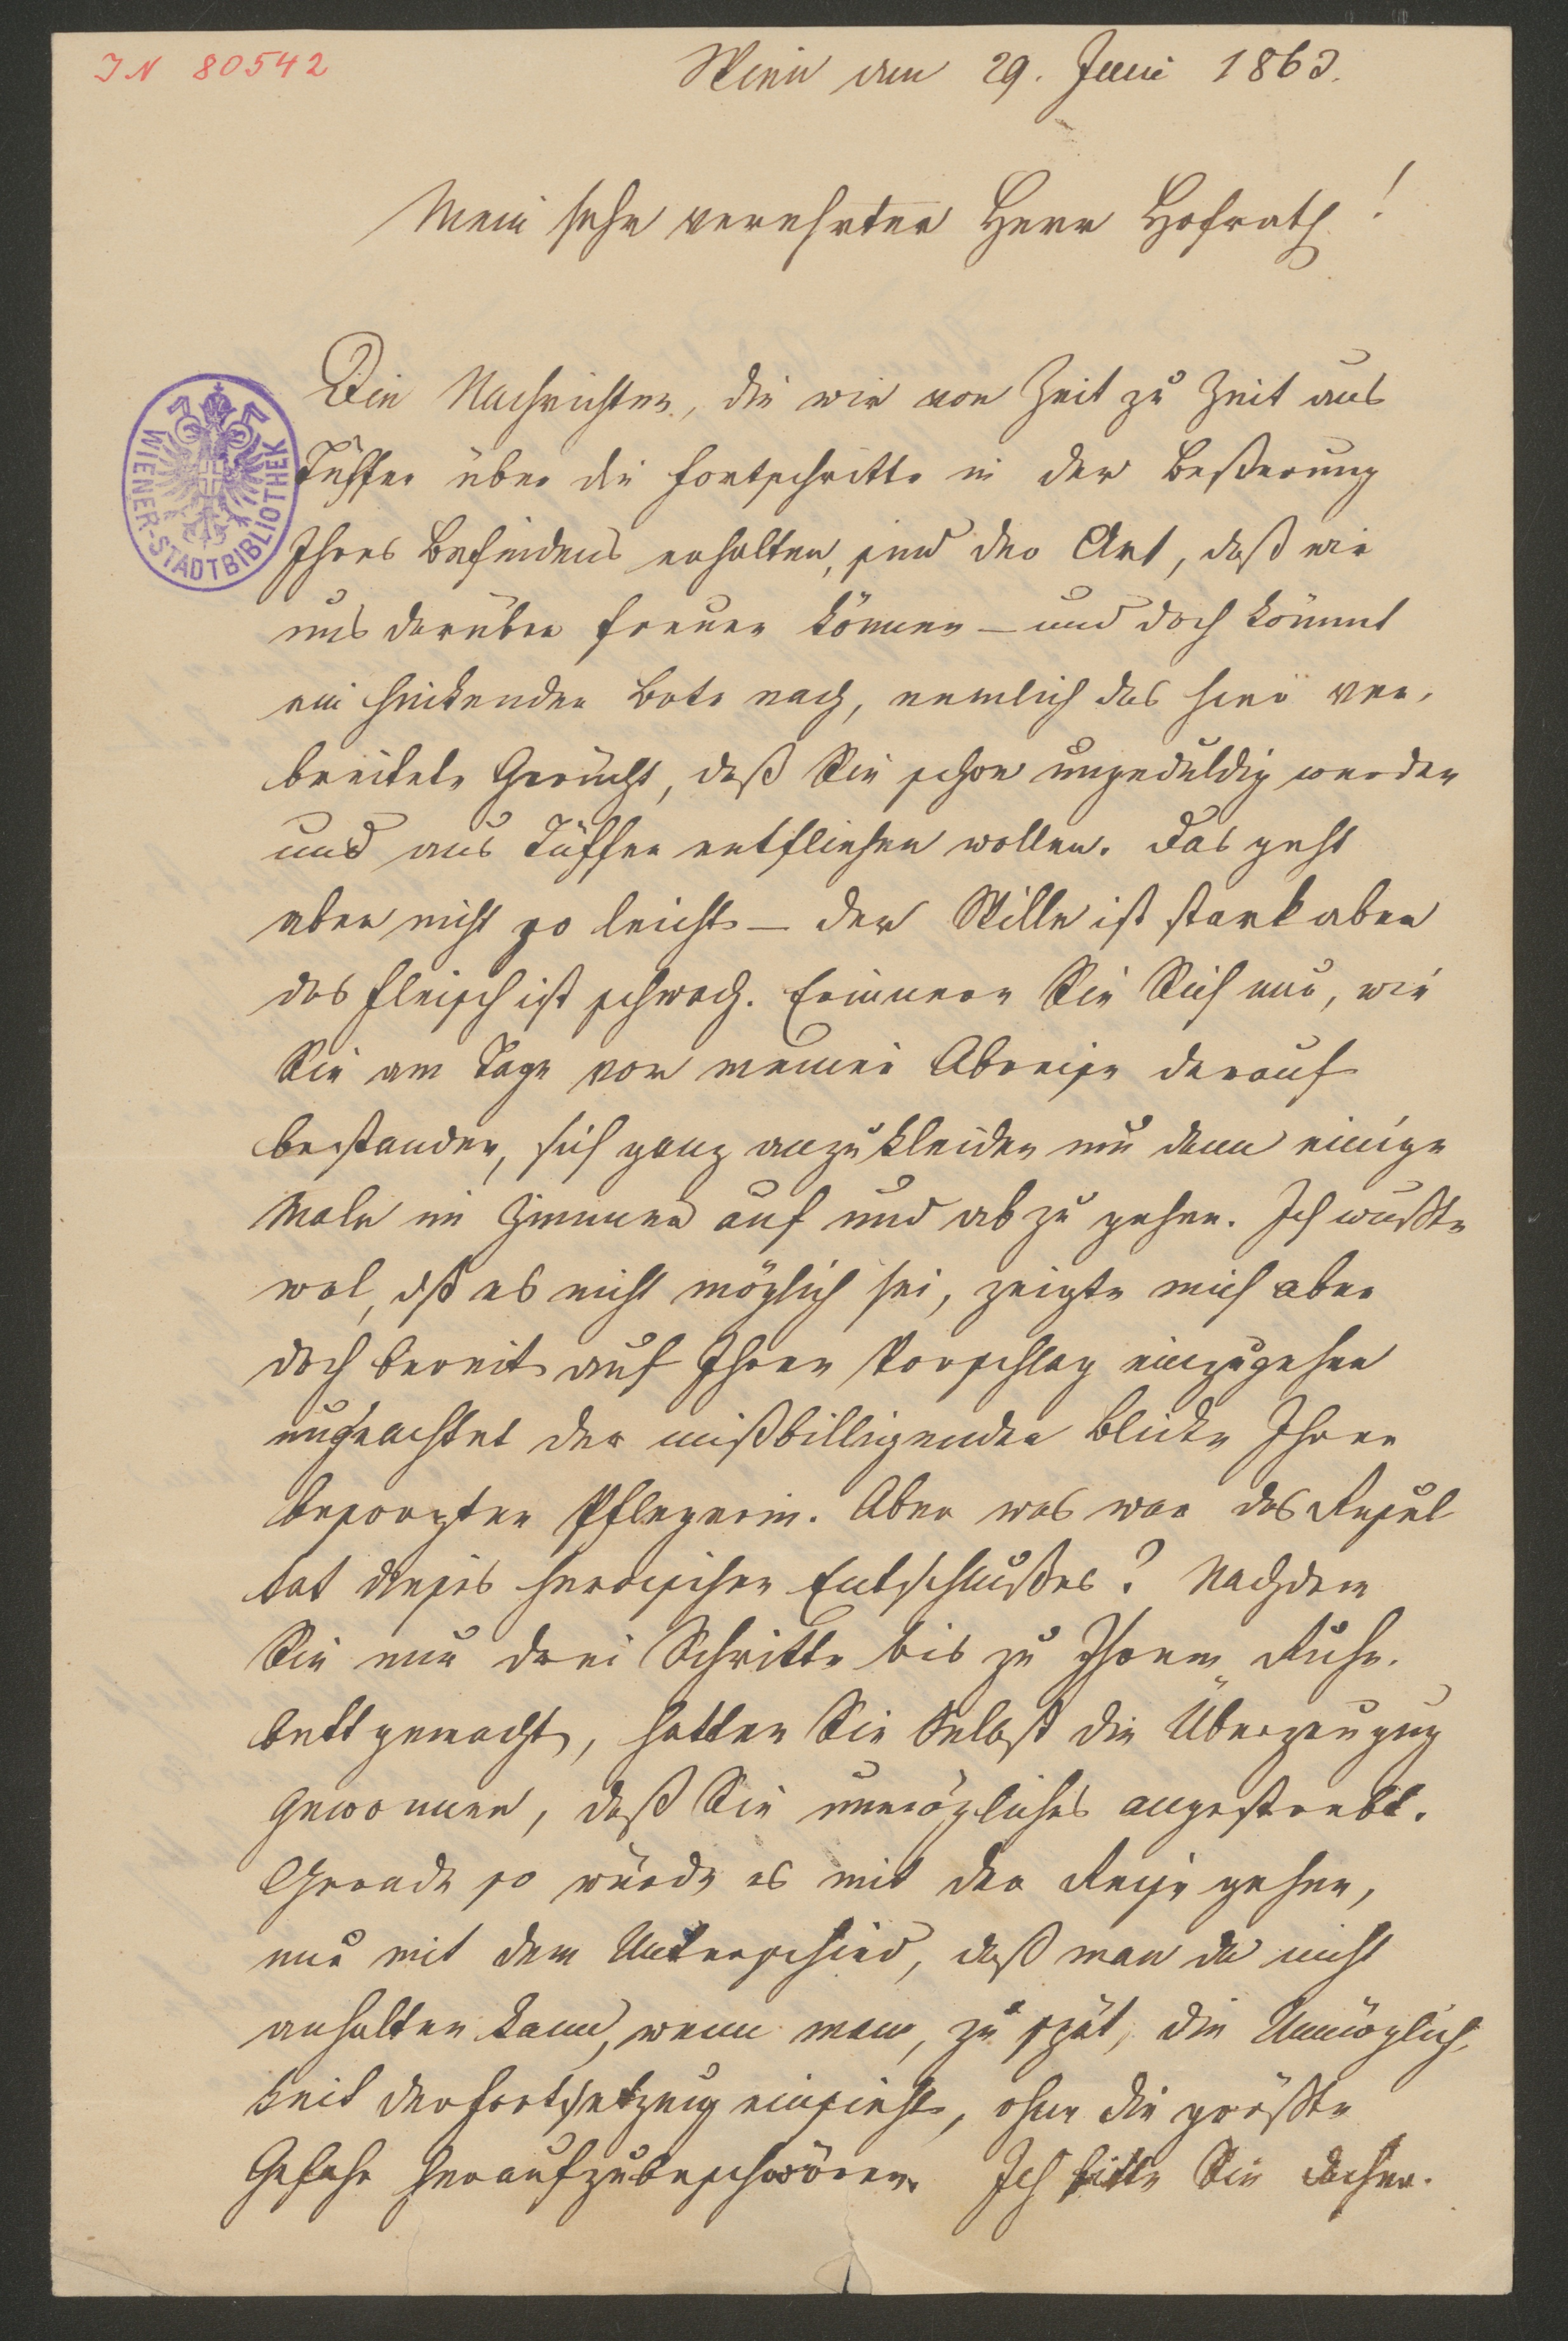 IN 80542
Wien am 29. Juni 1863.
Mein sehr verehrter Herr Hofrath!
WIENER-STADTBIBLIOTHEK
Die Nachrichten, die wir von Zeit zu Zeit aus
Tüffer über die Fortschritte in der Beßerung
Ihres Befindens erhalten, sind der Art, daß wir
uns darüber freuen können – und doch kömmt
ein hinkender Bote nach, nemlich das hier ver-
breitete Gerücht, daß Sie schon ungeduldig werden
und aus Tüffer entfliehen wollen. Das geht
aber nicht so leicht – der Wille ist stark aber
das Fleisch ist schwach. Erinnern Sie Sich nur, wie
Sie am Tage vor meiner Abreise darauf
bestanden, sich ganz anzukleiden um dann einige
Male im Zimmer auf und ab zu gehen. Ich wußte
wol, dß es nicht möglich sei, zeigte mich aber
doch bereit auf Ihren Vorschlag einzugehen
ungeachtet der mißbilligenden Blicke Ihrer
besorgten Pflegerin. Aber was war das Resul
tat dieses heroischen Entschlußes? Nachdem
Sie nur drei Schritte bis zu Ihrem Ruhe-
bett gemacht, hatten Sie Selbst die Überzeugung
gewonnen, daß Sie unmögliches angestrebt.
Gerade so würde es mit der Reise gehen,
nur mit dem Unterschied, daß man da nicht
anhalten kann, wenn man, zu spät, die Unmöglich-
keit der Fortsetzung einsieht, ohne die größte
Gefahr heraufzubeschwören. Ich bitte Sie daher.